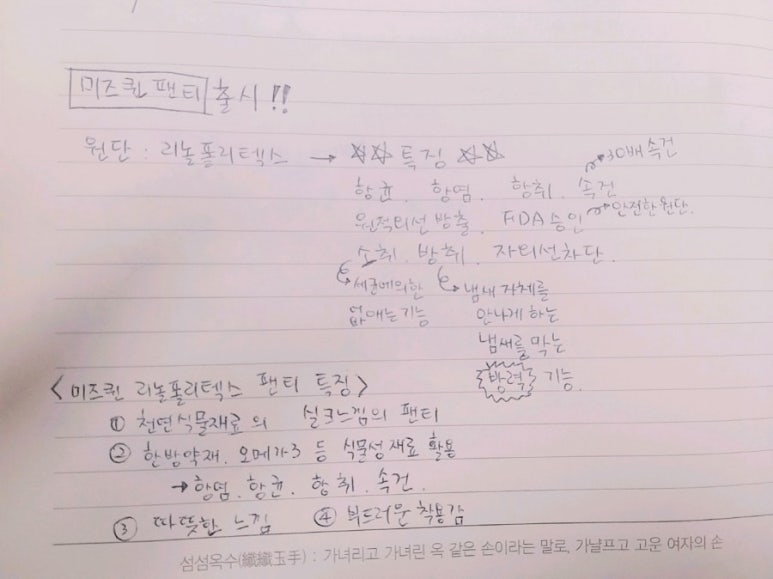 미즈퀸 팬티 출시 !!
원단 : 리놀폴리텍스 → ☆☆ 특징 ☆☆
→30배 속건
항균. 항염. 항취. 속건
원적외선 방출. FDA승인 →안전한 원단.
소취. 방취. 자외선차단.
→세균에의한 →냄새 자체를
없애는기능 안나게 하는
냄새를 막는
방력 기능.
<미즈퀸 리놀폴리텍스 팬티 특징>
① 천연식물재료의 실크느낌의 팬티
② 한방약재. 오메가3 등 식물성 재료 활용
→항염. 항균. 항취. 속건.
③ 따뜻한 느낌 ④ 부드러운 착용감
섬섬옥수(纖纖玉手) : 가녀리고 가녀린 옥 같은 손이라는 말로, 가냘프고 고운 여자의 손